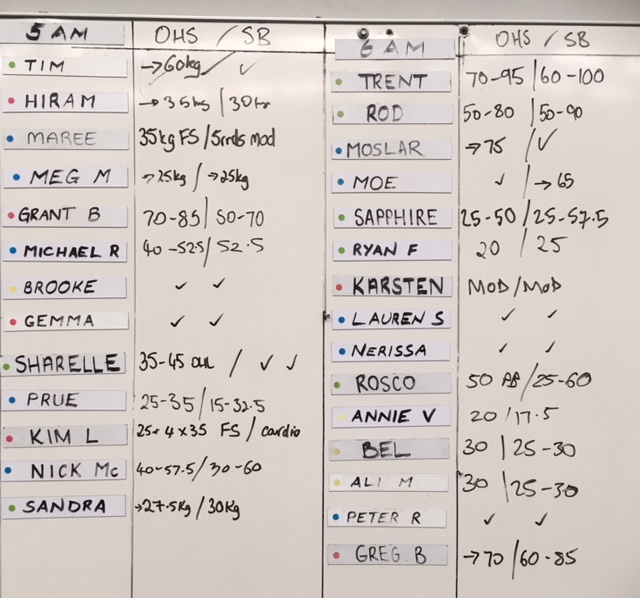 5 AM OHS / SB
TIM →60kg / ✓
HIRAM →35kg / 30kg
MAREE 35kg FS / 5rnds mod
MEG M →25kg / →25kg
GRANT B 70-85 / 50-70
MICHAEL R 40-52.5 / 52.5
BROOKE ✓ ✓
GEMMA ✓ ✓
SHARELLE 35-45 / ✓ ✓
PRUE 25-35 / 15-32.5
KIM L 25+ 4x35 FS / cardio
NICK Mc 40-57.5 / 30-60
SANDRA →27.5kg / 30kg
6 AM OHS / SB
TRENT 70-95 / 60-100
ROD 50-80 / 50-90
MOSLAR →75 / ✓
MOE ✓ / →65
SAPPHIRE 25-50 / 25-57.5
RYAN F 20 / 25
KARSTEN MOD / MOD
LAUREN S ✓ ✓
NERISSA ✓ ✓
ROSCO 50 AB / 25-60
ANNIE V 20 / 17.5
BEL 30 / 25-30
ALI M 30 / 25-30
PETER R ✓ ✓
GREG. B →70 / 60-85